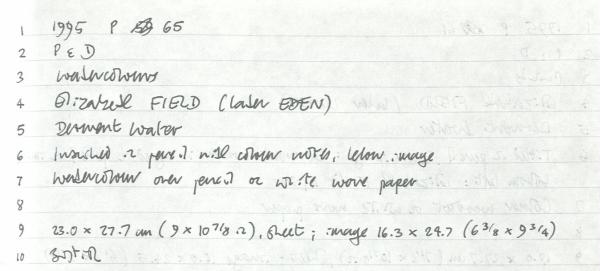 1 1995 P 65
2 P & D
3 watercolours
4 Elizabeth FIELD (later EDEN)
5 Derwent Water
6 Inscribed in pencil with colour notes, below image
7 Watercolour over pencil on white wove paper
8
9 23.0 x 27.7 cm (9 x 10 7/8 in), sheet; image 16.3 x 24.7 (6 3/8 x 9 3/4)
10 British